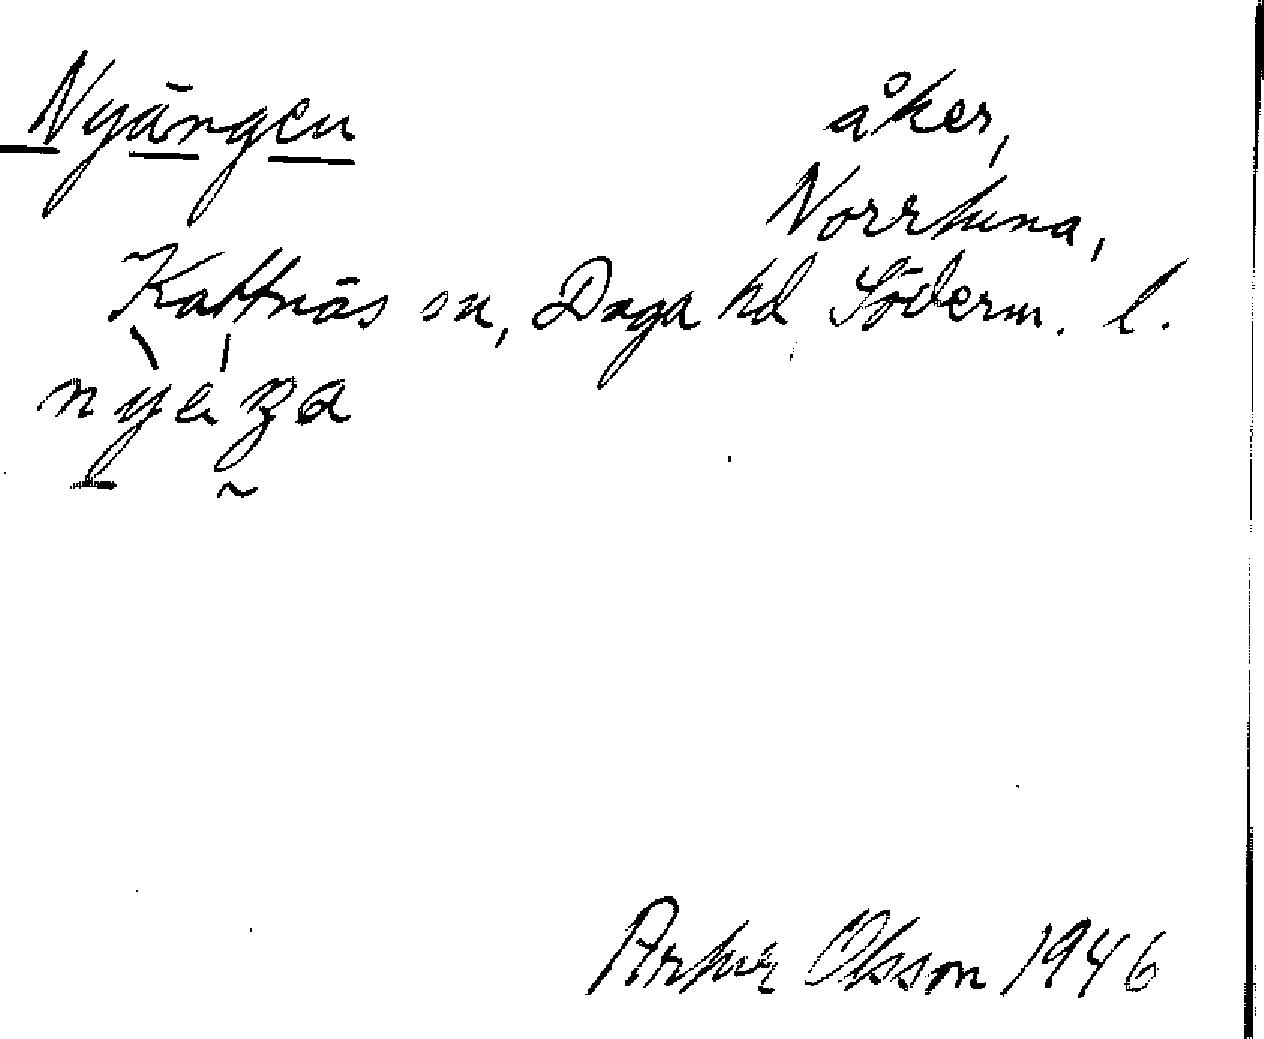 Nyängen åker,
Norrtuna,
Kattnäs sn, Daga hd Söderm. l.
Artur Olsson 1946